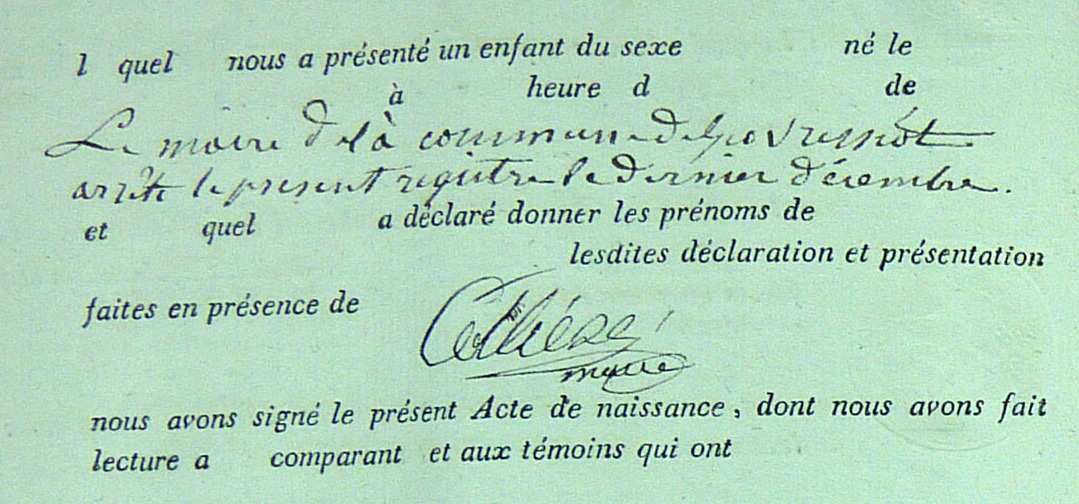 l quel nous a présenté un enfant du sexe né le
à heure d de
Le maire de la commune de
arrête le present registre le dernier décembre.
et quel a déclaré donner les prénoms de
lesdites déclaration et présentation
faites en présence de
maire
nous avons signé le présent Acte de naissance, dont nous avons fait
lecture a comparant et aux témoins qui ont